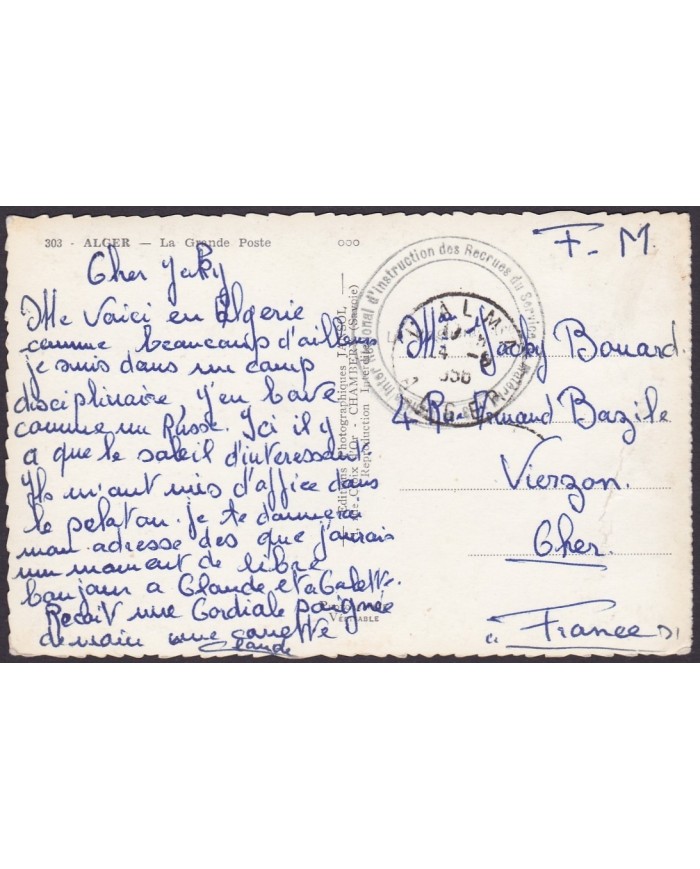 303 - ALGER — La Grande Poste
Cher Jaky
Me Voici en Algerie
comme beaucoup d'ailleurs
je suis dans un camp
disciplinaire y'en bave
comme un Russe. Ici il y
a que le soleil d'interessant.
Ils m'ont mis d'affice dans
le peloton. je te donnerai
mon adresse des que j'aurais
un moment de libre
bonjour a Claude et a Colette.
Recoit une Cordiale poignée
de main une canette
Claude
Editions Photographiques
Croix d'Or - CHAMBERY (Savoie)
Reproduction Interdite
VÉRITABLE
d'instruction des Recrues du Service
ALMA
4 -6
ALGER
F. M.
Jacky Bouard
4 R. Fernand Bazile
Vierzon.
Cher.
France